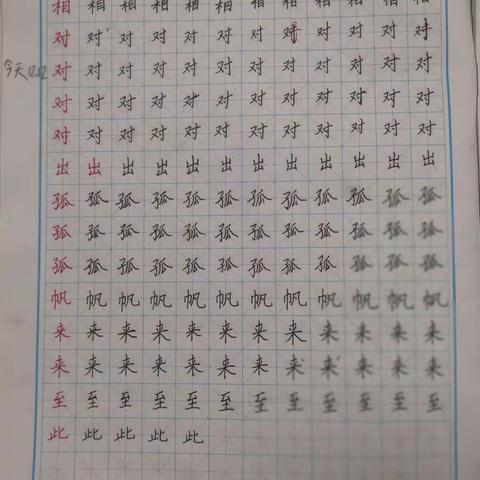 相相相相相相相相相相相相
对对对对对对对对对对对对
今天 对对对对对对对对对对对对
对对对对对对对对对对对对
对对对对对对对对对对对对
出出出出出出出出出出出出
孤孤孤孤孤孤孤孤孤孤孤孤
孤孤孤孤孤孤孤孤孤孤孤孤
孤孤孤孤孤孤孤孤孤孤孤孤
帆帆帆帆帆帆帆帆帆帆帆帆
来来来来来来来来来来来来
来来来来来来来来来来来来
至至至至至至至至至至至至
此此此此此